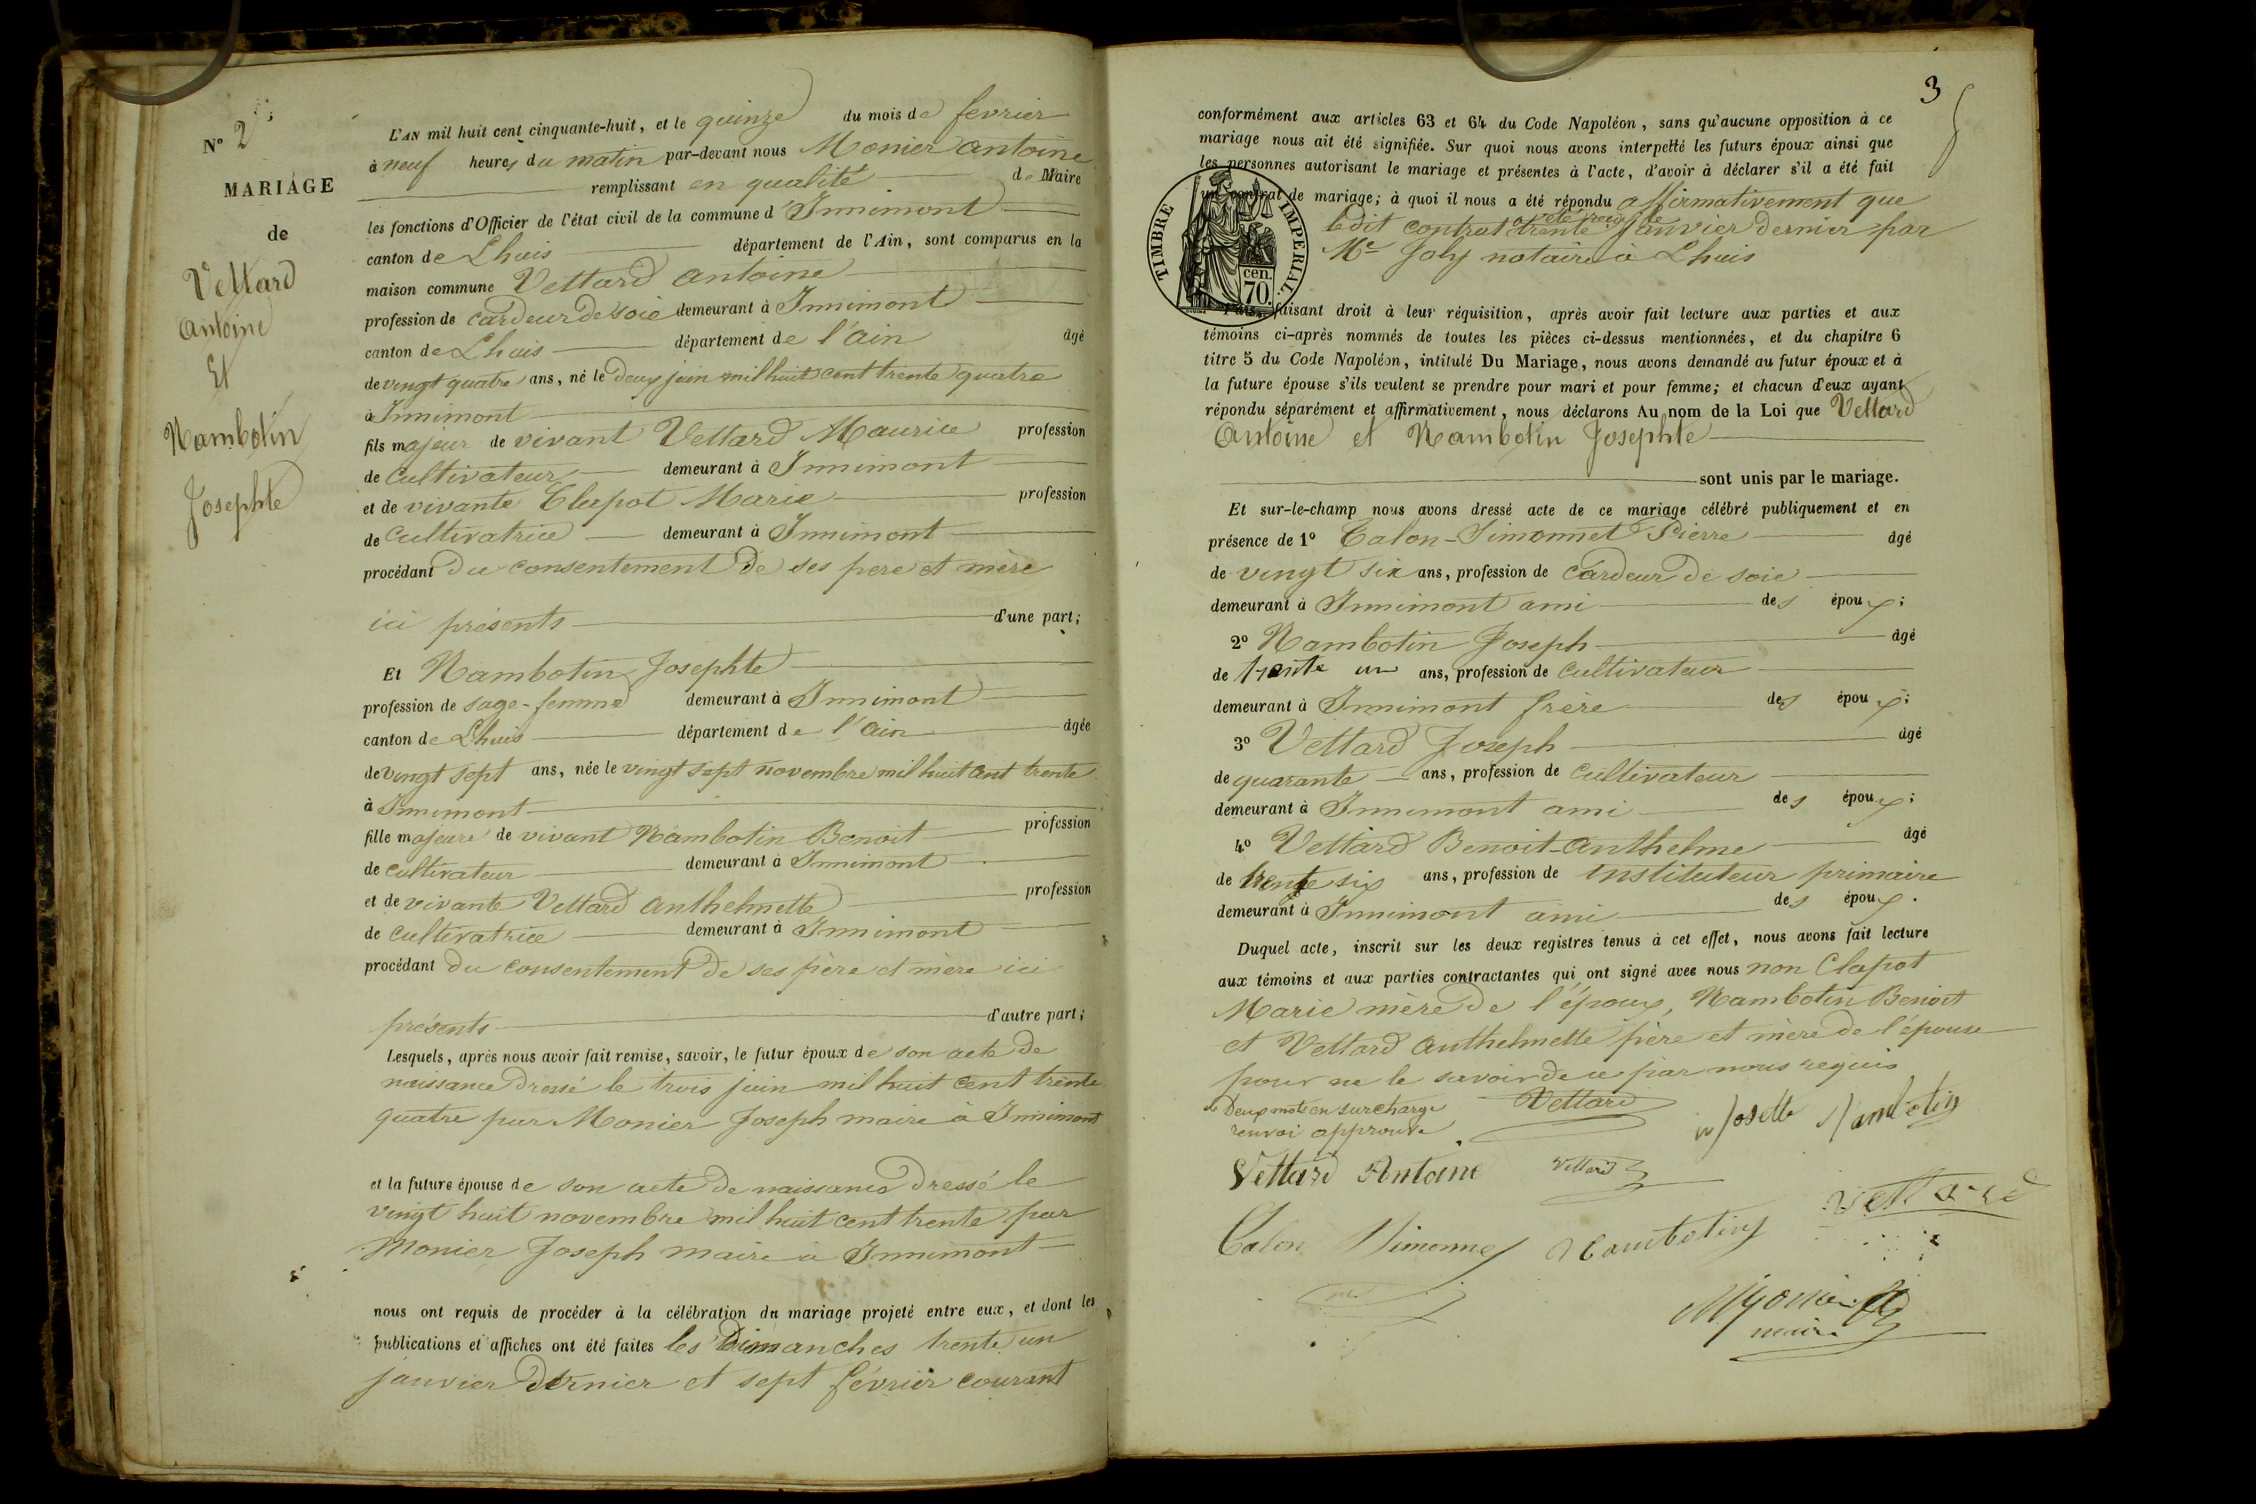 N° 2
MARIAGE
de
Vettard
Antoine
Et
Nambotin
Josephte
L'AN mil huit cent cinquante-huit, et le quinze du mois de fevrier
à neuf heures du matin par-devant nous Monier Antoine
remplissant en qualité de Maire
les fonctions d'Officier de l'état civil de la commune d'Innimont
canton de Lhuis département de l'Ain, sont comparus en la
maison commune Vettard Antoine
profession de cardeur de soie demeurant à Innimont
canton de Lhuis département de l'Ain âgé
de vingt quatre ans, né le deux juin mil huit cent trente quatre
à Innimont
fils majeur de vivant Vettard Maurice profession
de cultivateur demeurant à Innimont
et de vivante Clapot Marie profession
de cultivatrice demeurant à Innimont
procédant du consentement de ses pere et mère
ici présents d'une part;
Et Nambotin Josephte
profession de sage-femme demeurant à Innimont
canton de Lhuis département de l'Ain âgée
de vingt sept ans, née le vingt sept novembre mil huit cent trente
à Innimont
fille majeure de vivant Nambotin Benoit profession
de cultivateur demeurant à Innimont
et de vivante Vettard Anthelmette profession
de cultivatrice demeurant à Innimont
procédant du consentement de ses père et mère ici
présents d'autre part;
Lesquels, après nous avoir fait remise, savoir, le futur époux de son acte de
naissance dressé le trois juin mil huit cent trente
quatre par Monier Joseph maire à Innimont
et la future épouse de son acte de naissance dressé le
vingt huit novembre mil huit cent trente par
Monier Joseph maire à Innimont
nous ont requis de procéder à la célébration du mariage projeté entre eux, et dont les
publications et affiches ont été faites les Dimanches trente un
janvier dernier et sept février courant
3
conformément aux articles 63 et 64 du Code Napoléon, sans qu'aucune opposition à ce
mariage nous ait été signifiée. Sur quoi nous avons interpellé les futurs époux ainsi que
les personnes autorisant le mariage et présentes à l'acte, d'avoir à déclarer s'il a été fait
un contrat de mariage; à quoi il nous a été répondu affirmativement que
a été reçu le
ledit contrat trente janvier dernier par
Me Joly notaire à Lhuis
TIMBRE IMPERIAL
cen.
70.
Puis, faisant droit à leur réquisition, après avoir fait lecture aux parties et aux
témoins ci-après nommés de toutes les pièces ci-dessus mentionnées, et du chapitre 6
titre 5 du Code Napoléon, intitulé Du Mariage, nous avons demandé au futur époux et à
la future épouse s'ils veulent se prendre pour mari et pour femme; et chacun d'eux ayant
répondu séparément et affirmativement, nous déclarons Au nom de la Loi que Vettard
Antoine et Nambotin Josephte
sont unis par le mariage.
Et sur-le-champ nous avons dressé acte de ce mariage célébré publiquement et en
présence de 1° Calon-Simonnet Pierre âgé
de vingt six ans, profession de cardeur de soie
demeurant à Innimont ami des époux;
2° Nambotin Joseph âgé
de trente un ans, profession de cultivateur
demeurant à Innimont frère des époux;
3° Vettard Joseph âgé
de quarante ans, profession de cultivateur
demeurant à Innimont ami des époux;
4° Vettard Benoit-Anthelme âgé
de trente six ans, profession de instituteur primaire
demeurant à Innimont ami des époux.
Duquel acte, inscrit sur les deux registres tenus à cet effet, nous avons fait lecture
aux témoins et aux parties contractantes qui ont signé avec nous non Clapot
Marie mère de l'époux, Nambotin Benoit
et Vettard Anthelmette père et mère de l'épouse
pour ne le savoir de ce par nous requis
Deux mots en surcharge
renvoi approuvé
Vettard
Josette Nambotin
Vettard Antoine
Vettard
Vettard
Calon Simonne
Nambotin
Monier
maire